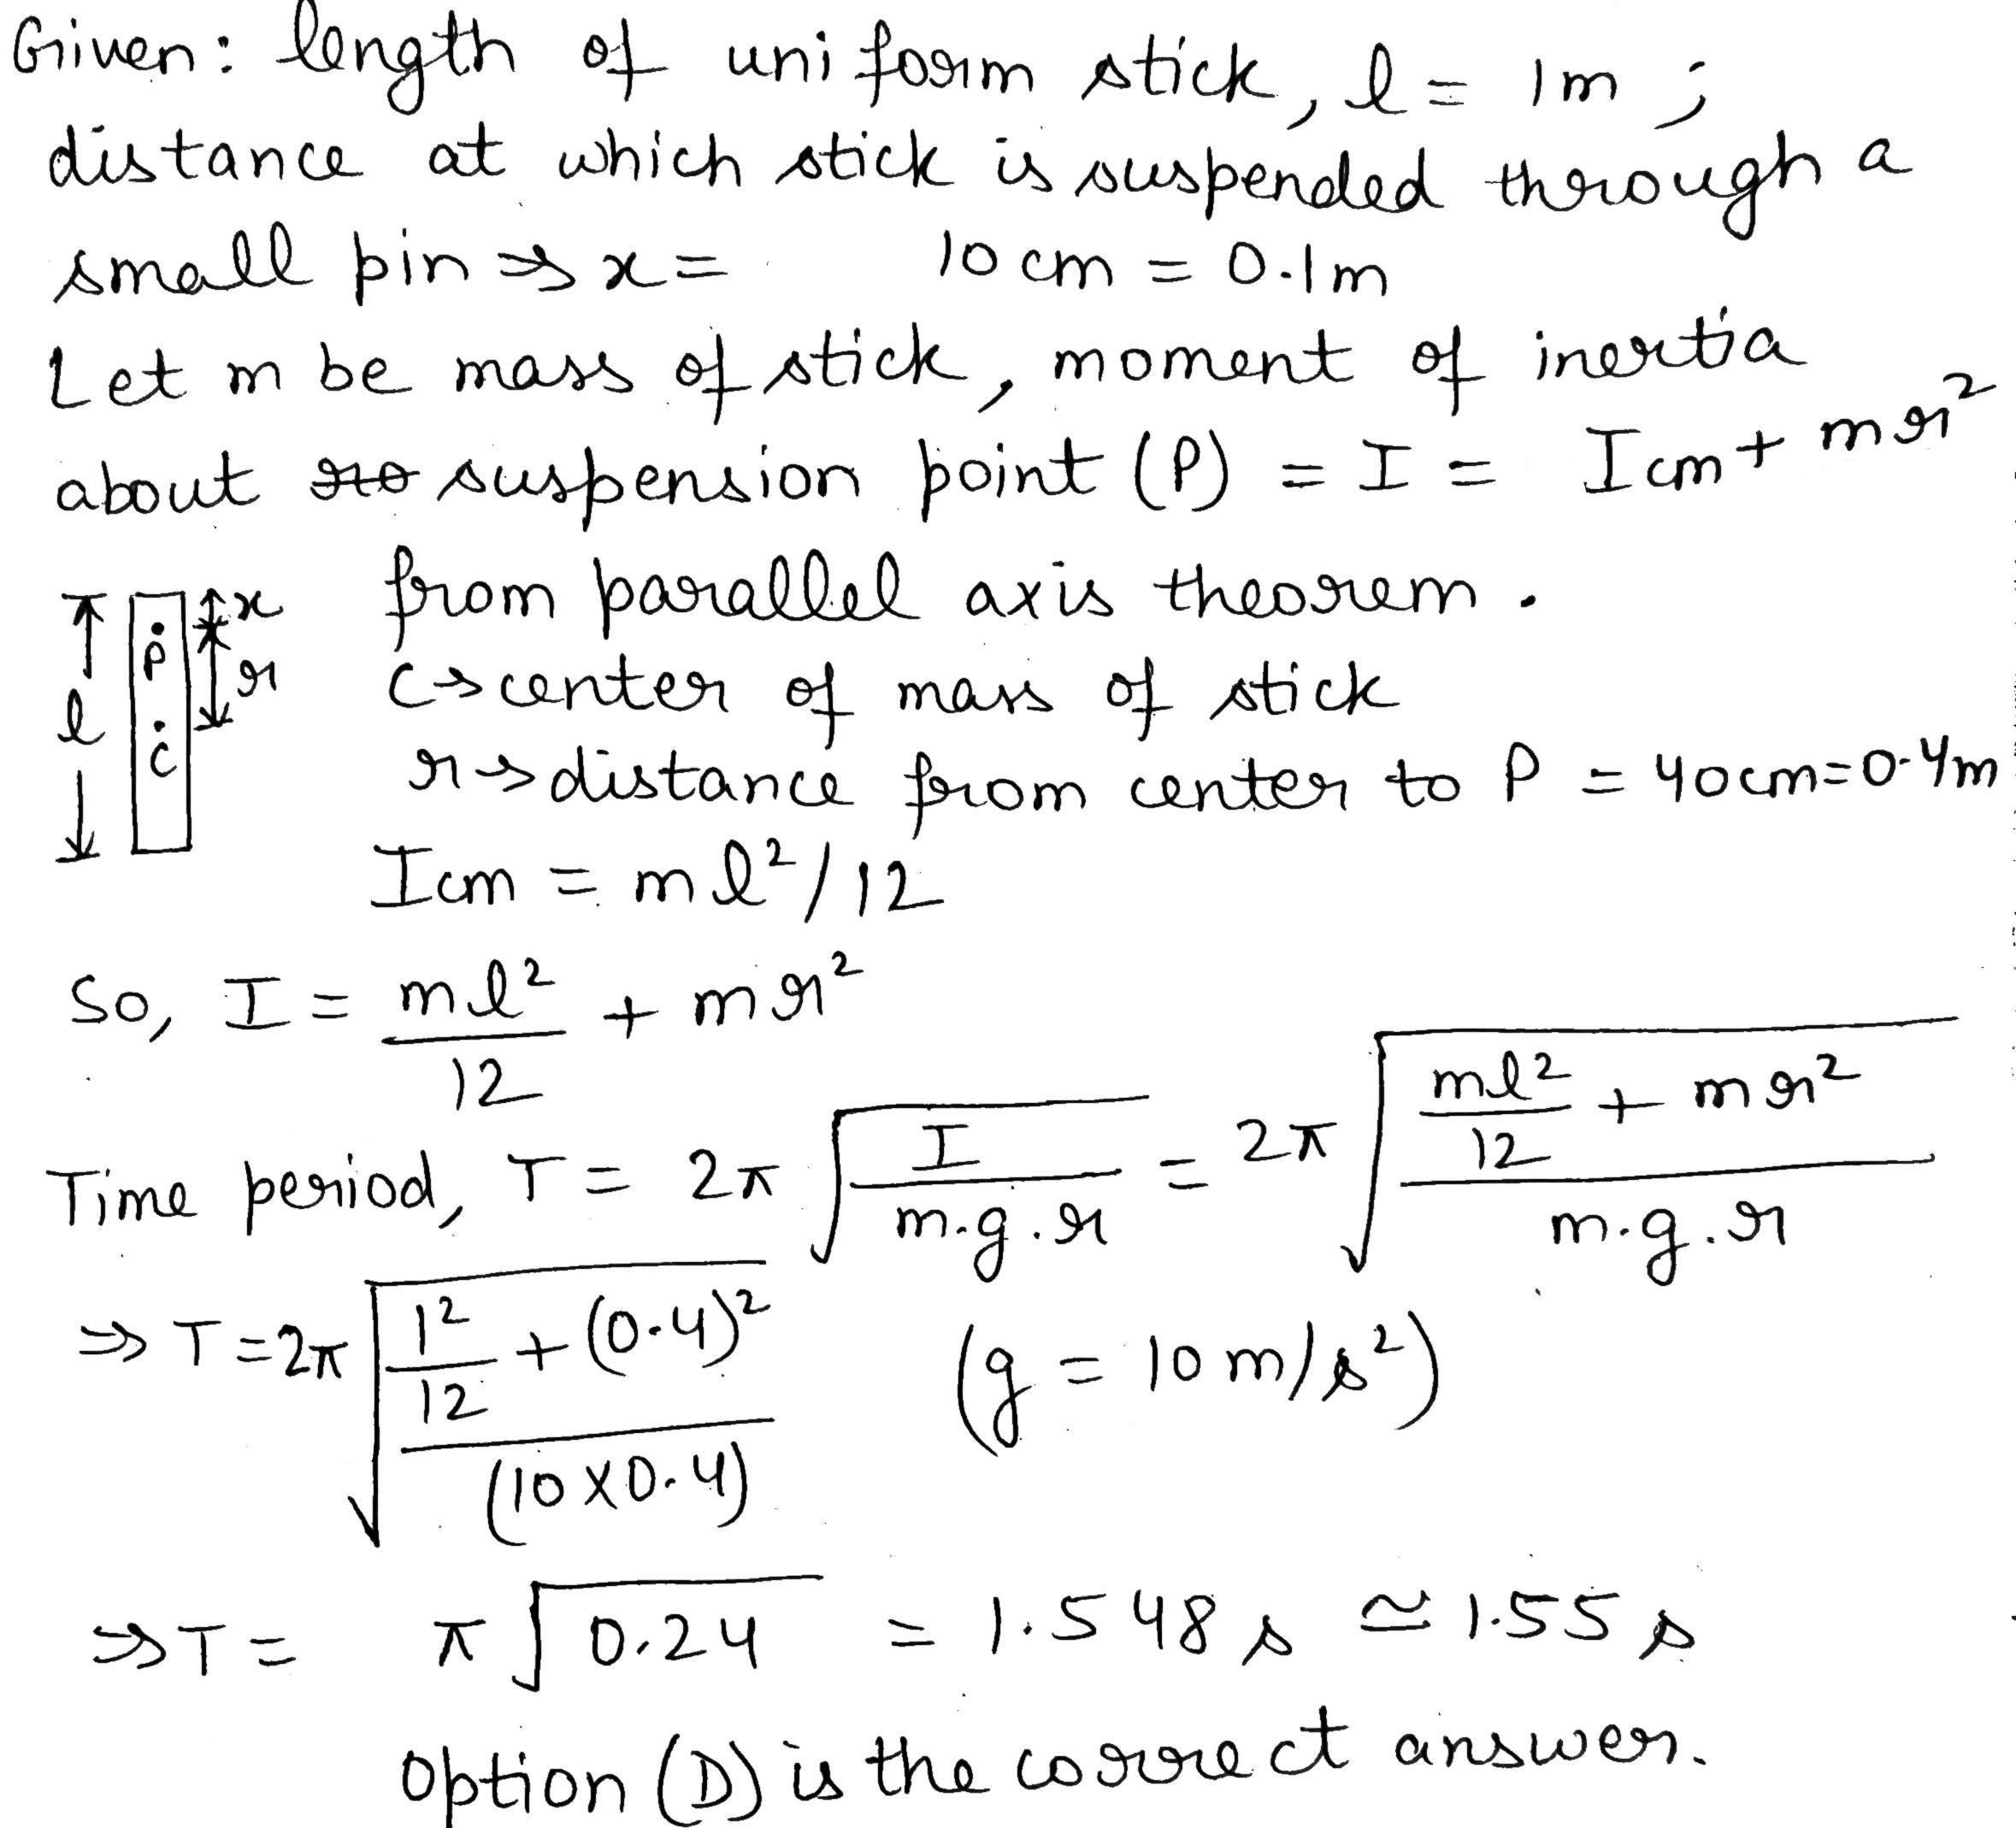 Given: length of uniform stick, l = 1m ;
distance at which stick is suspended through a
small pin → x = 10 cm = 0.1m
Let m be mass of stick, moment of inertia
about suspension point (P) = I = Icm + mr²
from parallel axis theorem.
x
P
r
l
C
C → center of mass of stick
r → distance from center to P = 40cm = 0.4m
Icm = ml²/12
So, I = ml²/12 + mr²
Time period, T = 2π √(I/(m.g.r)) = 2π √((ml²/12 + mr²)/(m.g.r))
⇒ T = 2π √((1²/12 + (0.4)²)/(10×0.4)) (g = 10 m/s²)
⇒ T = π √0.24 = 1.548 s ≃ 1.55 s
Option (D) is the correct answer.